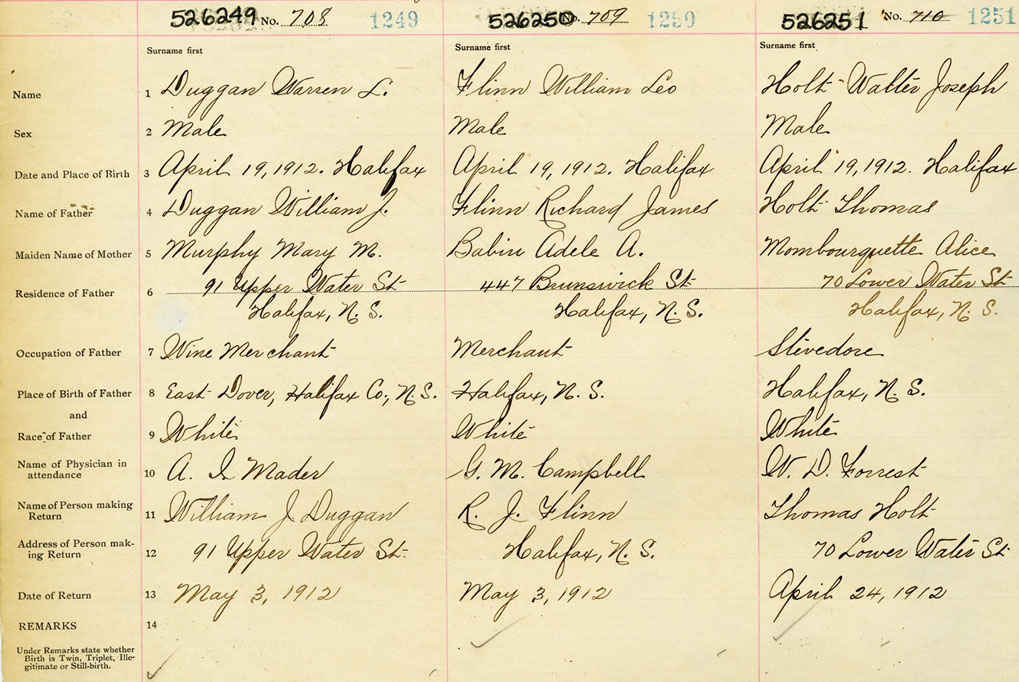 526249 No. 708 1249 526250 No. 709 1250 526251 No. 710 1251
Surname first Surname first Surname first
Name 1 Duggan Warren L. Flinn William Leo Holt Walter Joseph
Sex 2 Male Male Male
Date and Place of Birth 3 April 19, 1912. Halifax April 19, 1912. Halifax April 19, 1912. Halifax
Name of Father 4 Duggan William J. Flinn Richard James Holt Thomas
Maiden Name of Mother 5 Murphy Mary M. Babin Adele A. Mombourquette Alice
Residence of Father 6 91 Upper Water St 447 Brunswick St 70 Lower Water St
Halifax, N. S. Halifax, N. S. Halifax, N. S.
Occupation of Father 7 Wine Merchant Merchant Stevedore
Place of Birth of Father 8 East Dover, Halifax Co, N. S. Halifax, N. S. Halifax, N. S.
and
Race of Father 9 White White White
Name of Physician in
attendance 10 A. I Mader G. M. Campbell W. D. Forrest
Name of Person making
Return 11 William J Duggan R. J. Flinn Thomas Holt
Address of Person mak-
ing Return 12 91 Upper Water St Halifax, N. S. 70 Lower Water St
Date of Return 13 May 3, 1912 May 3, 1912 April 24, 1912
REMARKS 14
Under Remarks state whether
Birth is Twin, Triplet, Ille-
gitimate or Still-birth.